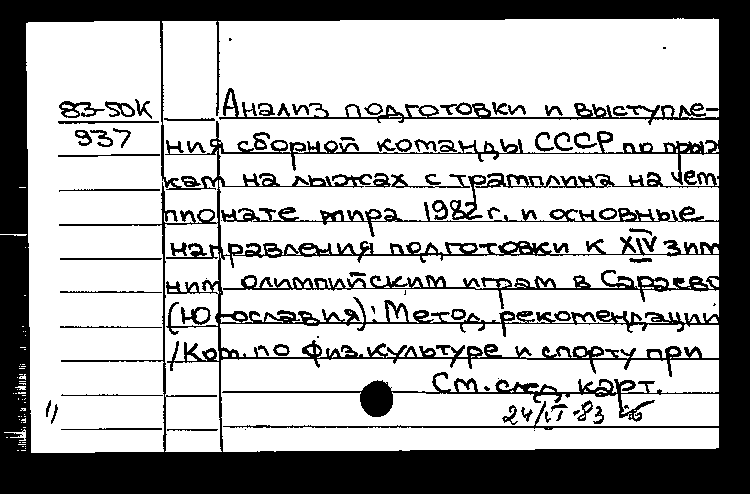 83-50К
937
Анализ подготовки и выступле-
ния сборной команды СССР по прыж
кам на лыжах с трамплина на чем-
пионате мира 1982 г. и основные
направления подготовки к XIV зим
ним олимпийским играм в Сараево
(Югославия): Метод. рекомендации
/Ком. по физ.культуре и спорту при
См. след. карт.
24/VI-83